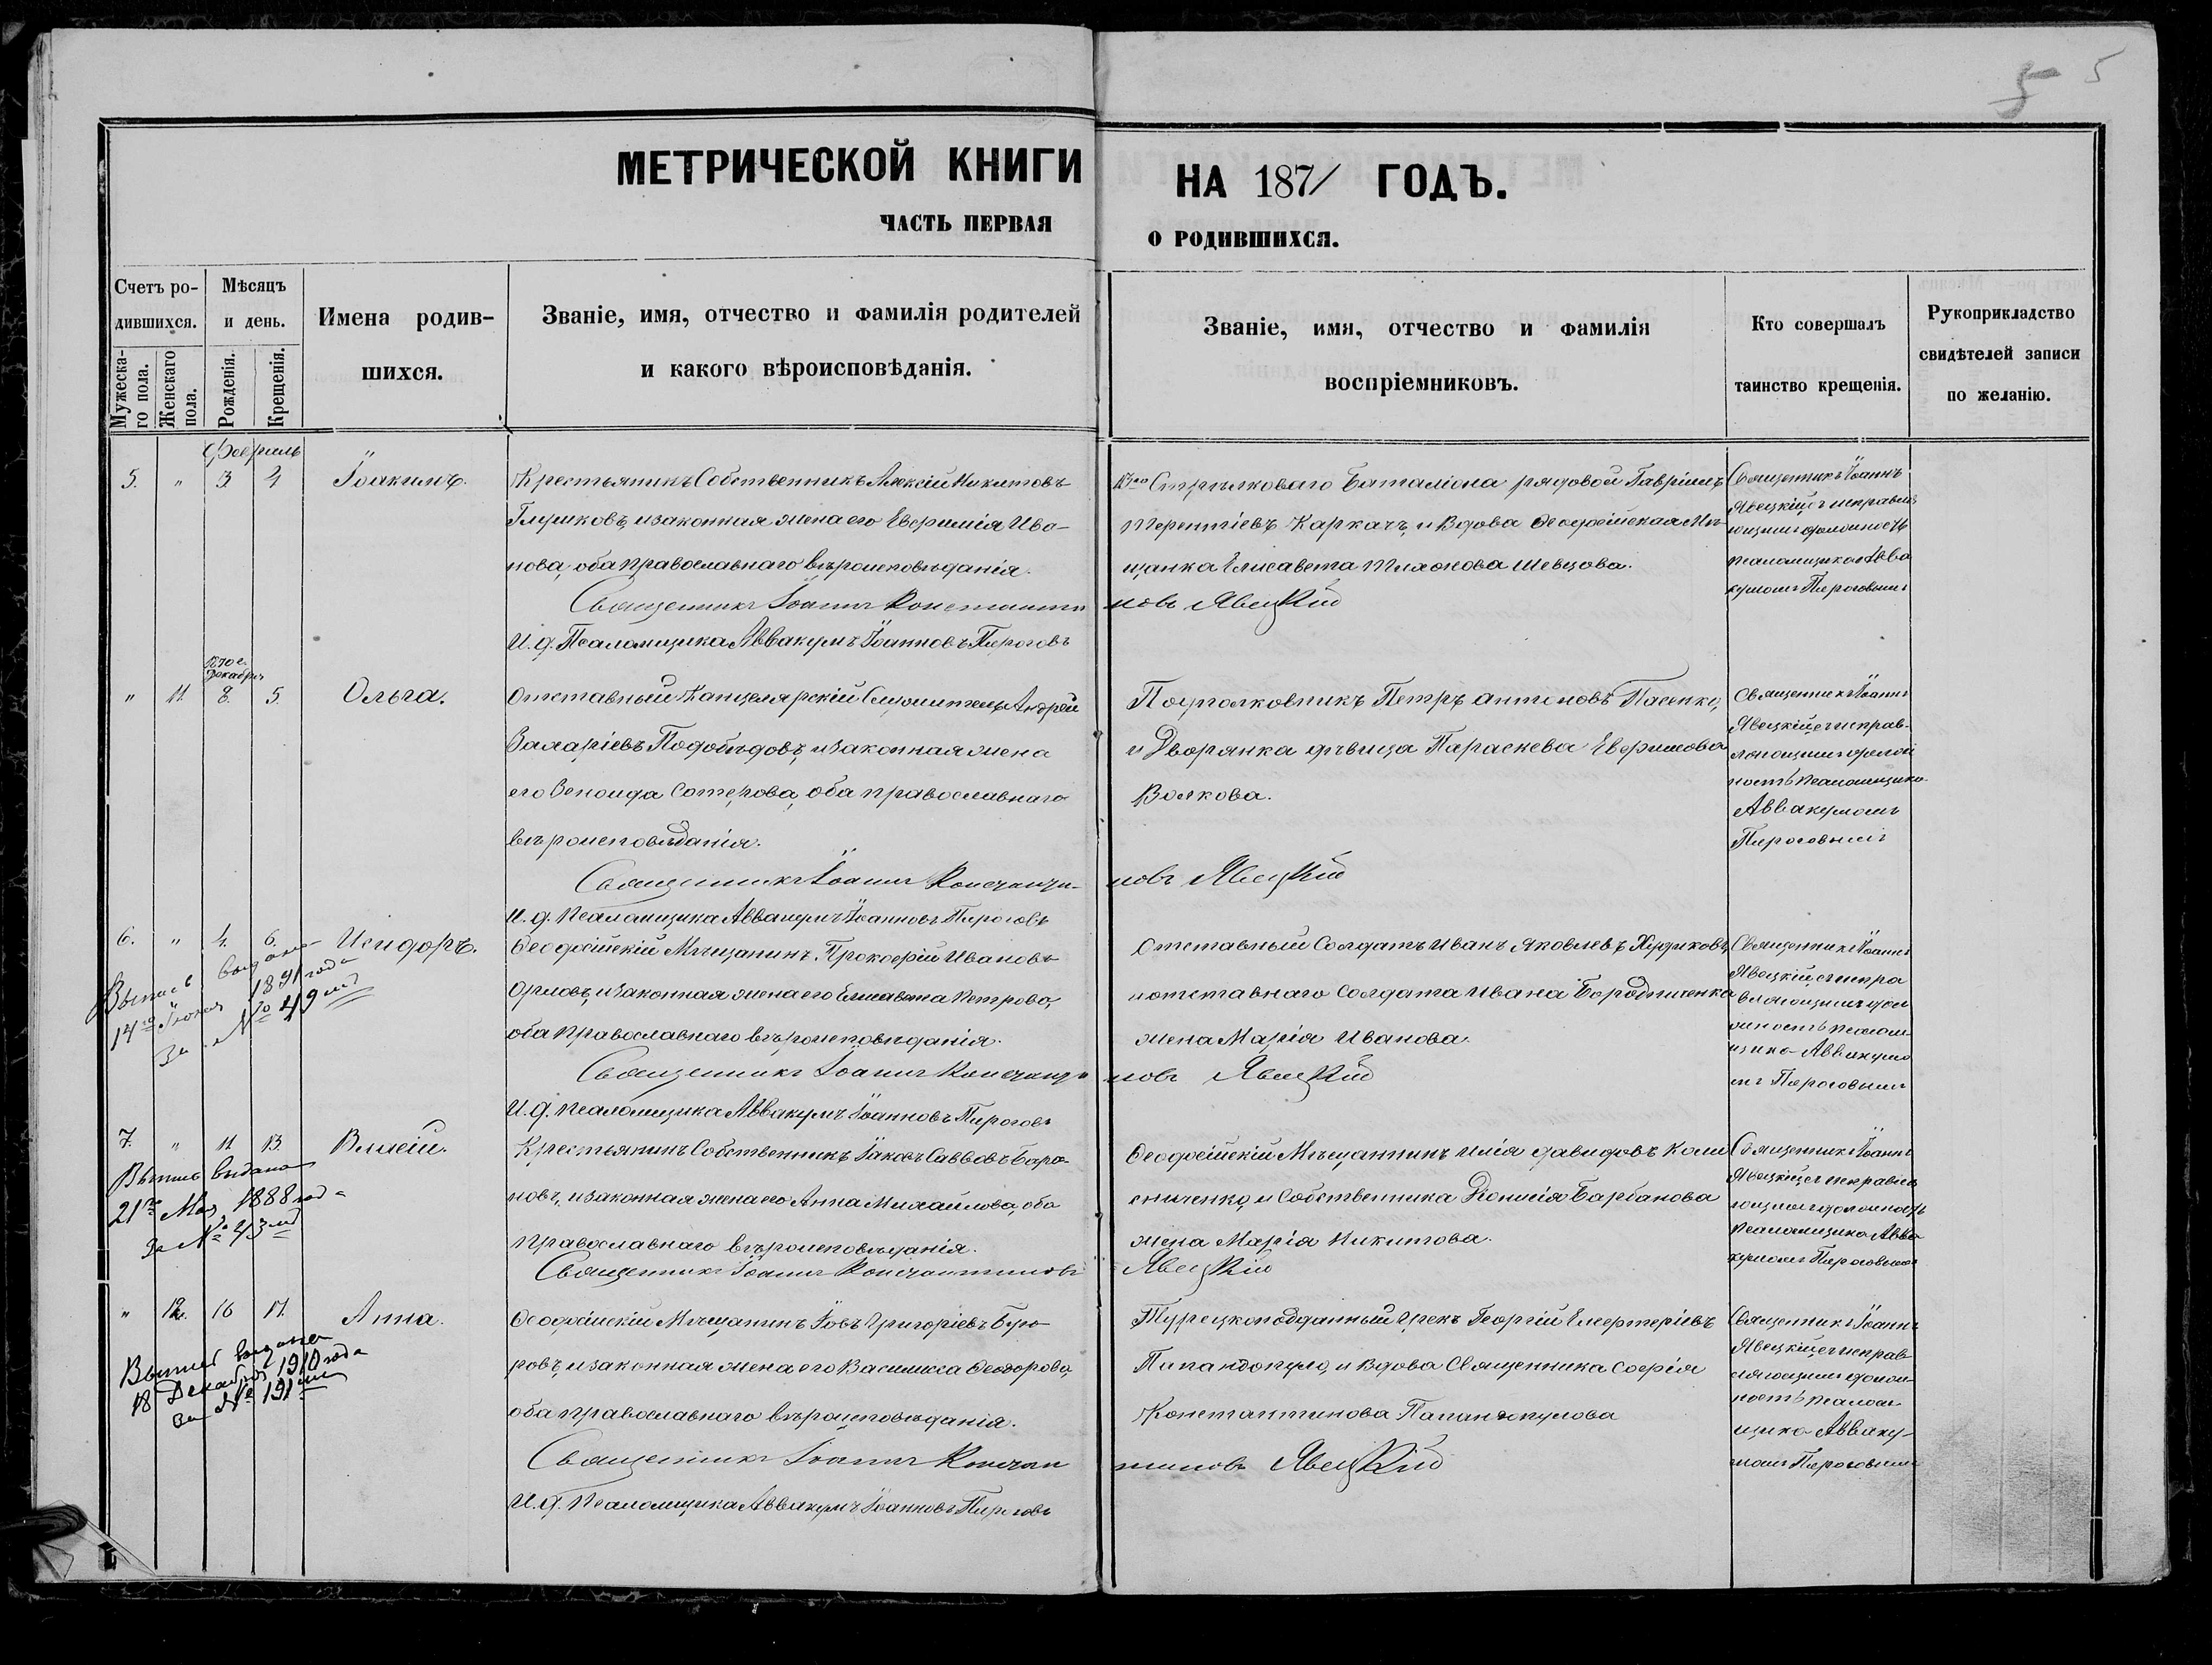 5
5
МЕТРИЧЕСКОЙ КНИГИ НА 1871 ГОДЪ.
ЧАСТЬ ПЕРВАЯ О РОДИВШИХСЯ.
Счетъ родившихся.
Мужескаго пола.
Женскаго пола.
Мѣсяцъ и день.
Рожденія.
Крещенія.
Имена родившихся.
Званіе, имя, отчество и фамилія родителей
и какого вѣроисповѣданія.
Званіе, имя, отчество и фамилія
воспріемниковъ.
Кто совершалъ
таинство крещенія.
Рукоприкладство
свидѣтелей записи
по желанію.
Февраль
5. " 3. 4 Іоакимъ.
Крестьянинъ Собственникъ Алексій Никитовъ
Глушковъ, и законная жена его Евфимія Ива-
нова, оба православнаго вѣроисповѣданія.
Стрѣлковаго Баталіона рядовой Гавріилъ
Терентіевъ Каркачъ, и Вдова Ѳеодосійская Мѣ-
щанка Елисавета Тихонова Шевцова.
Священникъ Іоаннъ
Явецкій съ исправля
ющимъ должность
псаломщика Авва
кумомъ Пироговымъ
Священникъ Іоаннъ Константиновъ Явецкій
И. д. Псаломщика Аввакумъ Іоанновъ Пироговъ
Декабрь
" 11. 8. 5. Ольга.
Отставный Канцелярскій Служитель Андрей
Валаріевъ Подобѣдовъ, и законная жена
его Зеноида Сотерова, оба православнаго
вѣроисповѣданія.
Подполковникъ Петръ Антоновъ Пасенко,
и Дворянка дѣвица Параскева Ефимова
Волкова.
Священникъ Іоаннъ
Явецкій съ исправ-
ляющимъ долж
ность псаломщика
Аввакумомъ
Пироговымъ
Священникъ Іоаннъ Константиновъ Явецкій
И. д. псаломщика Аввакумъ Іоанновъ Пироговъ
6. " 4. 6. Исидоръ.
Выпись выдана
14го Іюня 1891 года
за № 49мъ
Ѳеодосійскій Мѣщанинъ Прокофій Ивановъ
Орловъ, и законная жена его Елисавета Петрова,
оба православнаго вѣроисповѣданія.
Отставный Солдатъ Иванъ Яковлевъ
и отставнаго Солдата Ивана Бородтиченка
жена Марія Иванова.
Священникъ Іоаннъ
Явецкій съ испра
вляющимъ дол
жность псалом-
щика Аввакумо
мъ Пироговымъ
Священникъ Іоаннъ Константиновъ Явецкій
И. д. псаломщика Аввакумъ Іоанновъ Пироговъ
7. " 11. 13. Власій.
Выпись выдана
21го Мая 1888 года
за № 43мъ
Крестьянинъ Собственникъ Іаковъ Саввовъ Бара-
новъ, и законная жена его Анна Михайлова, оба
православнаго вѣроисповѣданія.
Ѳеодосійскій Мѣщанинъ Илія Давидовъ
и Собственника Діонисія Барбанова
жена Марія Никитова.
Священникъ Іоаннъ
Явецкій съ исправля
ющимъ должность
псаломщика Авва
кумомъ Пироговымъ
Священникъ Іоаннъ Константиновъ Явецкій
" 12. 16 17. Анна.
Выпись выдана
18 Декабря 1910 года
за № 191мъ
Ѳеодосійскій Мѣщанинъ Іовъ Григоріевъ Буго-
ровъ, и законная жена его Василисса Ѳеодорова,
оба православнаго вѣроисповѣданія.
Турецкоподданный Грекъ Георгій Елефтеріевъ
Папандопуло, и Вдова Священника Софія
Константинова Папандопулова
Священникъ Іоаннъ
Явецкій съ исправ-
ляющимъ долж-
ность псалом-
щика Авваку-
момъ Пироговымъ
Священникъ Іоаннъ Константиновъ Явецкій
И. д. Псаломщика Аввакумъ Іоанновъ Пироговъ